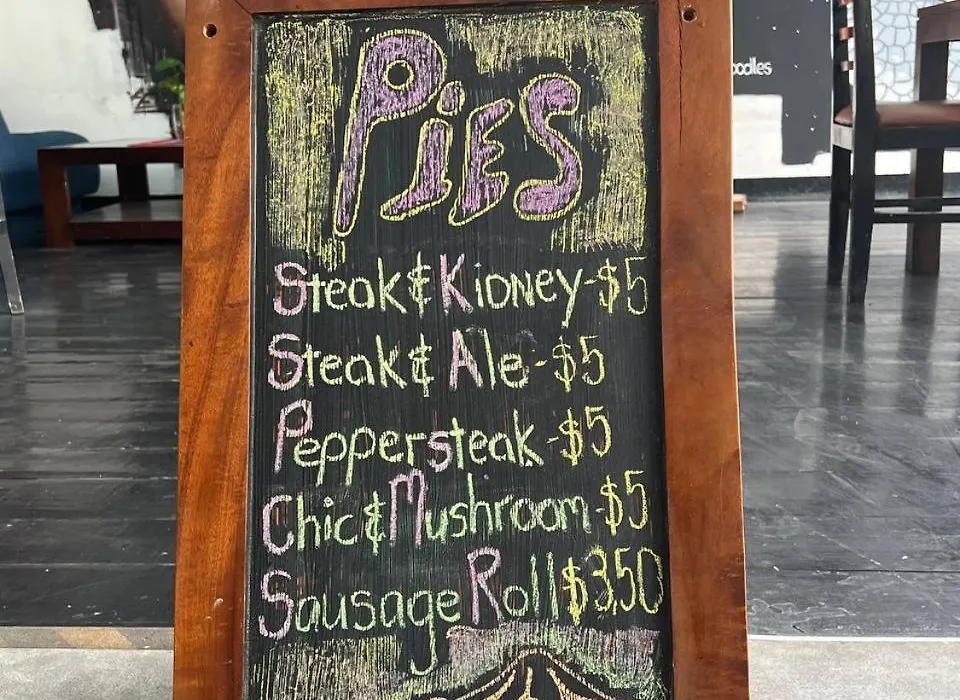 PiES
Steak & Kidney-$5
Steak & Ale-$5
Peppersteak-$5
Chic & Mushroom-$5
Sausage Roll $3,50